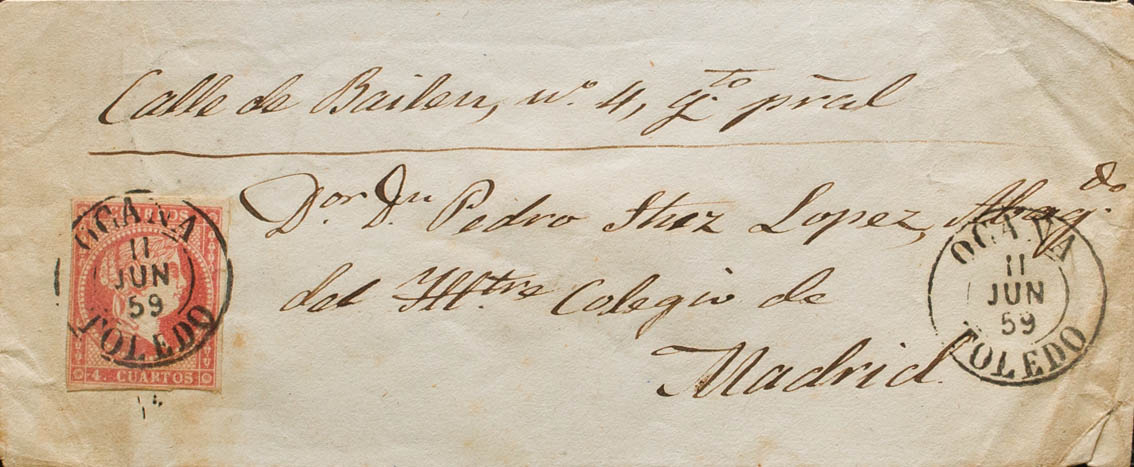 Calle de Bailen, nº 4, qto pral
Dor Dn Pedro Lopez, Abogdo
del Iltre Colegio de
Madrid
CUARTOS
OCAÑA
11
JUN
59
TOLEDO
4. CUARTOS
OCAÑA
11
JUN
59
TOLEDO